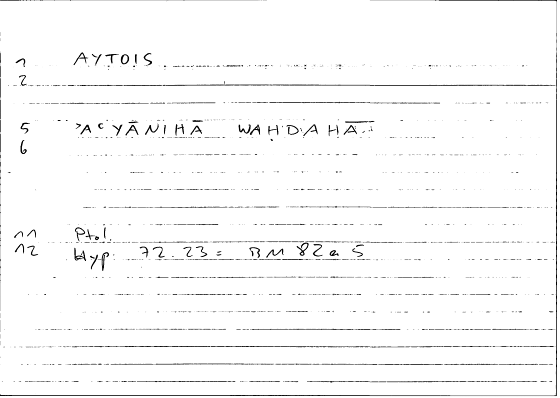 1 AYTOIS
2
5 ʾAʿYĀNIHĀ WAḤDAHĀ
6
11 Ptol.
12 Hyp 72.23 = BM 82a 5